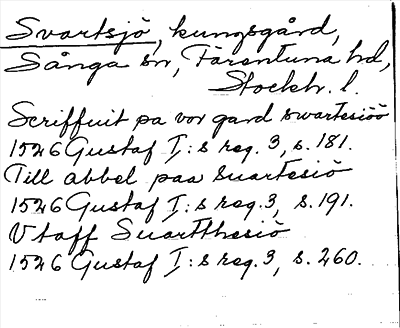 Svartsjö, kungsgård,
Sånga sn, Färentuna hd,
Stockh. l.
Scriffuit pa vor gard swartesiöö
1526 Gustaf I:s reg. 3, s. 181.
Till abbel paa suartesiö
1526 Gustaf I:s reg. 3, s. 191.
Vtaff Suartthesiö
1526 Gustaf I:s reg. 3, s. 260.